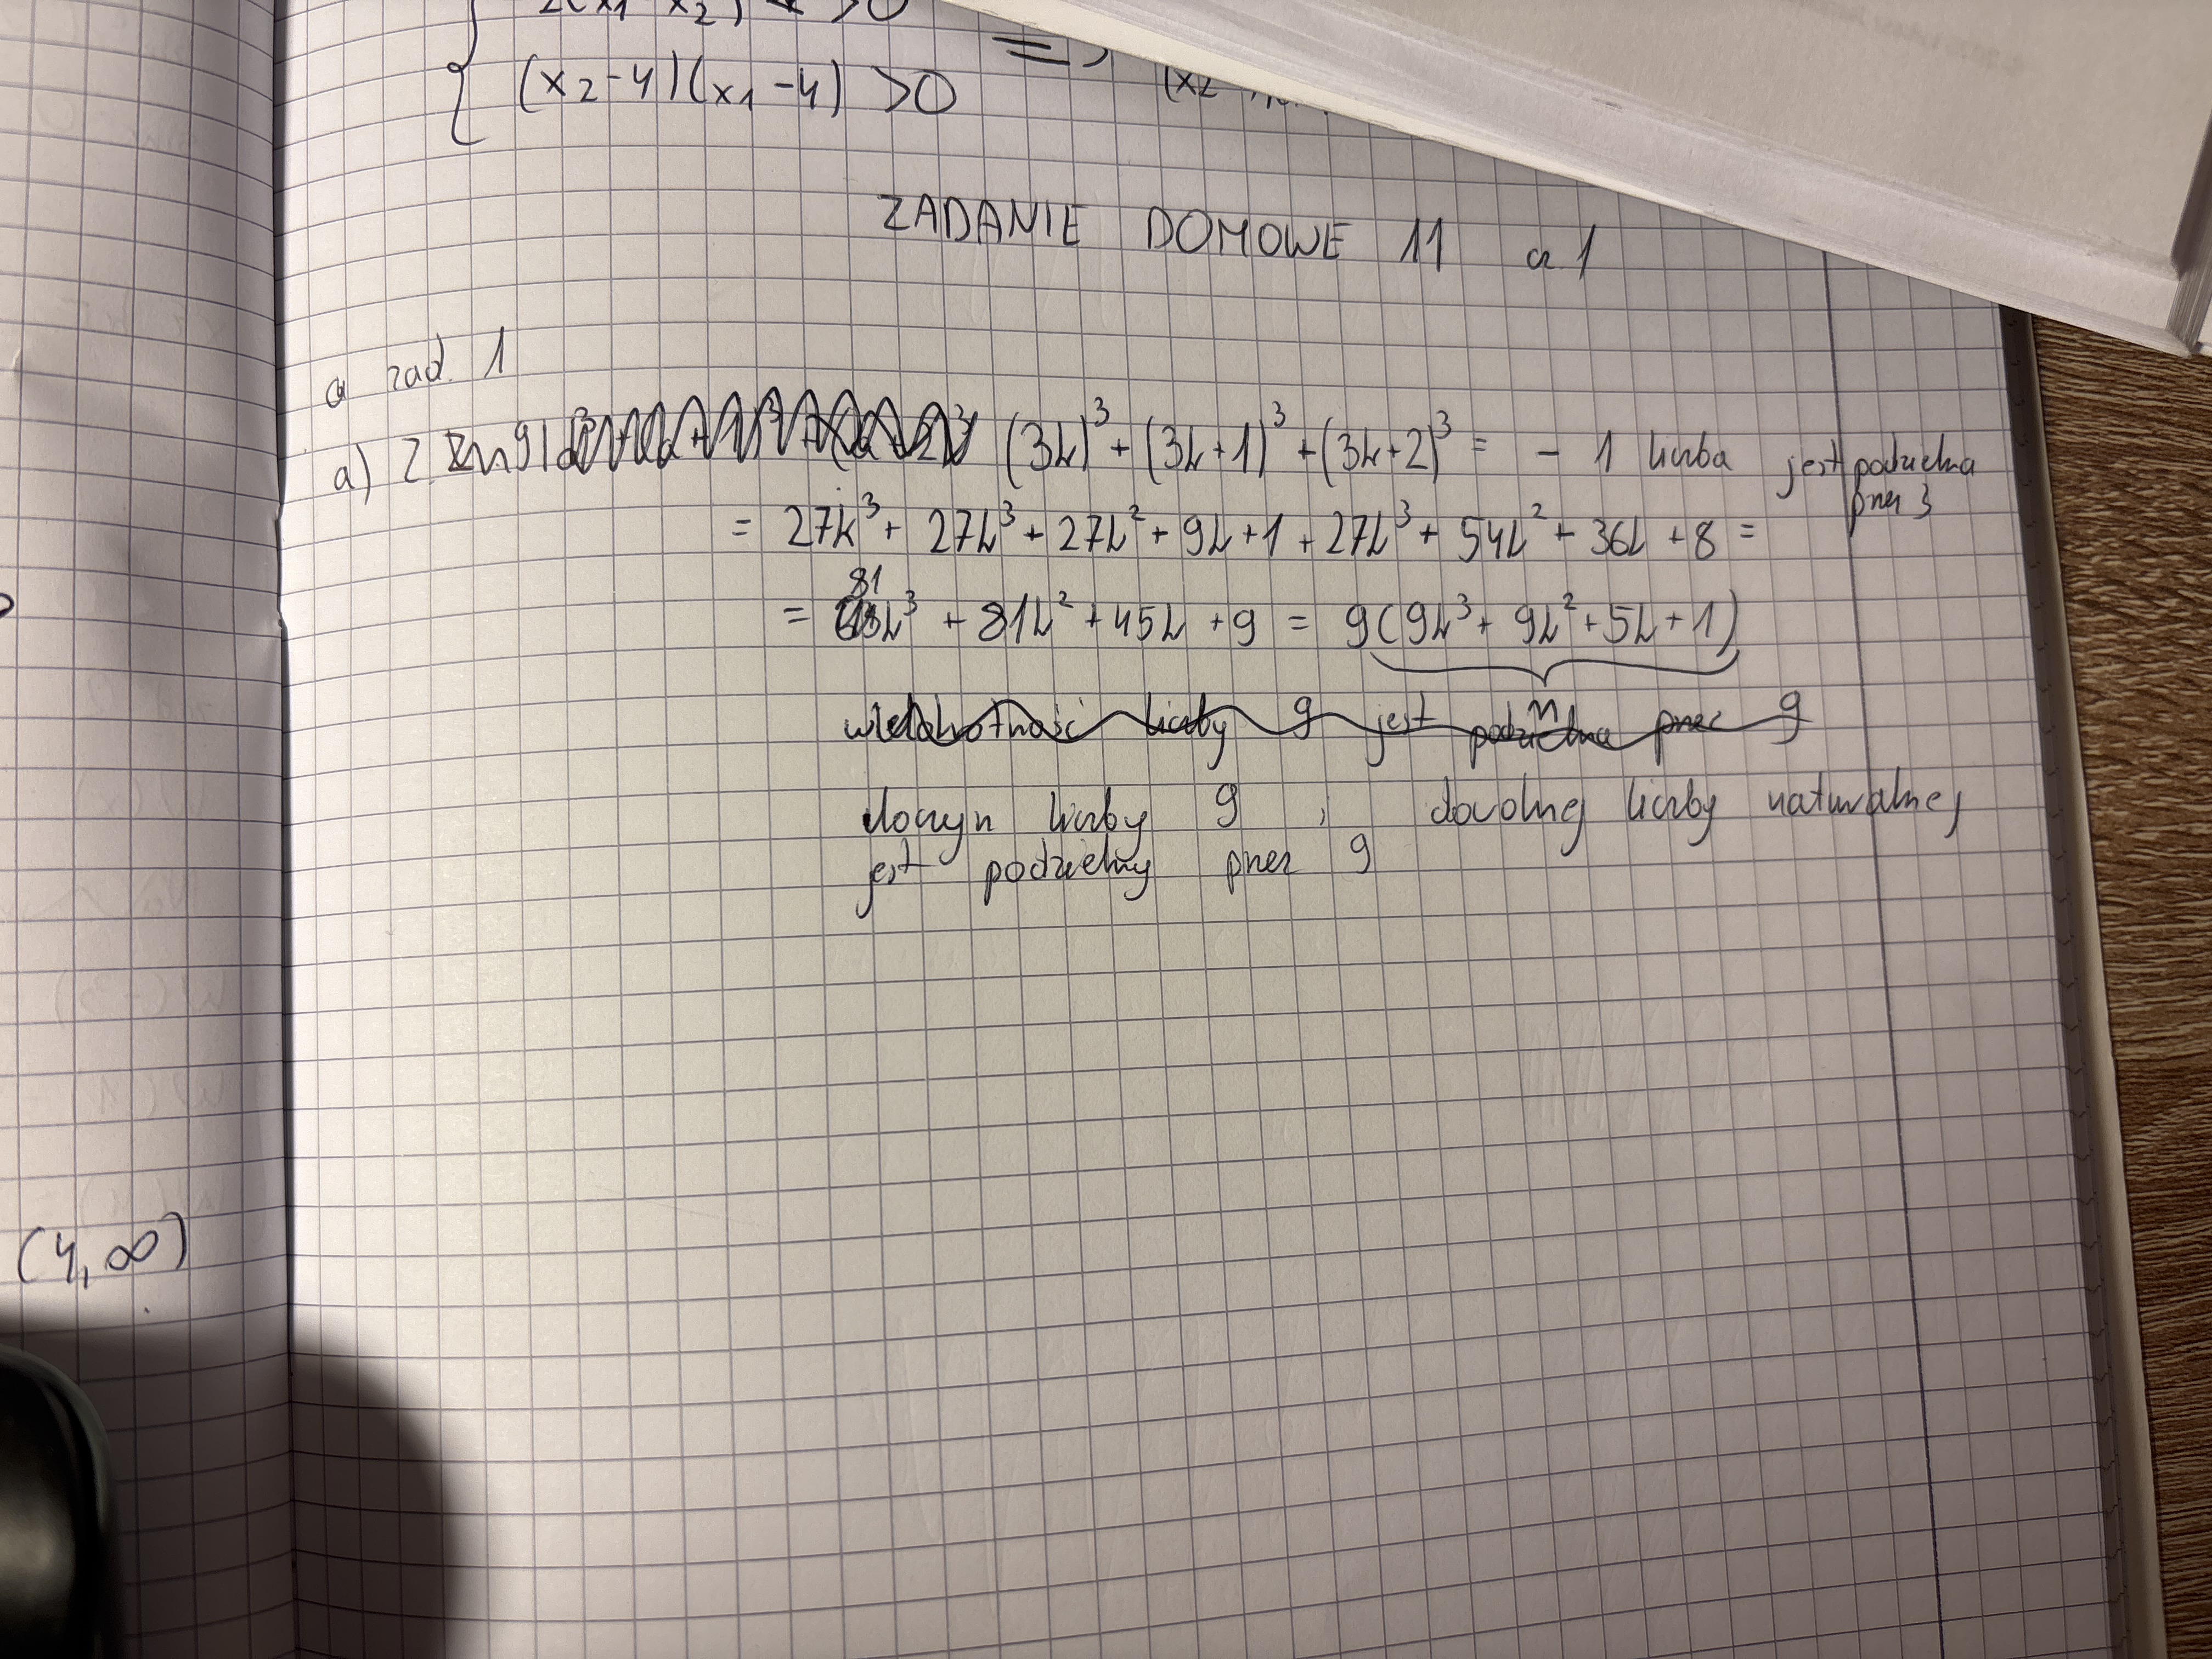 (x2-4)(x1-4) >0
ZADANIE DOMOWE 11 a 1
a zad. 1
a) Z (3k)³ + (3k+1)³ + (3k+2)³ = - 1 liczba jest podzielna
przez 3
= 27k³ + 27k³ + 27k² + 9k + 1 + 27k³ + 54k² + 36k + 8 =
81
= k³ + 81k² + 45k + 9 = 9(9k³ + 9k² + 5k + 1)
n
wielokrotność liczby 9 jest podzielna przez 9
iloczyn liczby 9 i dowolnej liczby naturalnej
jest podzielny przez 9
(4, ∞)